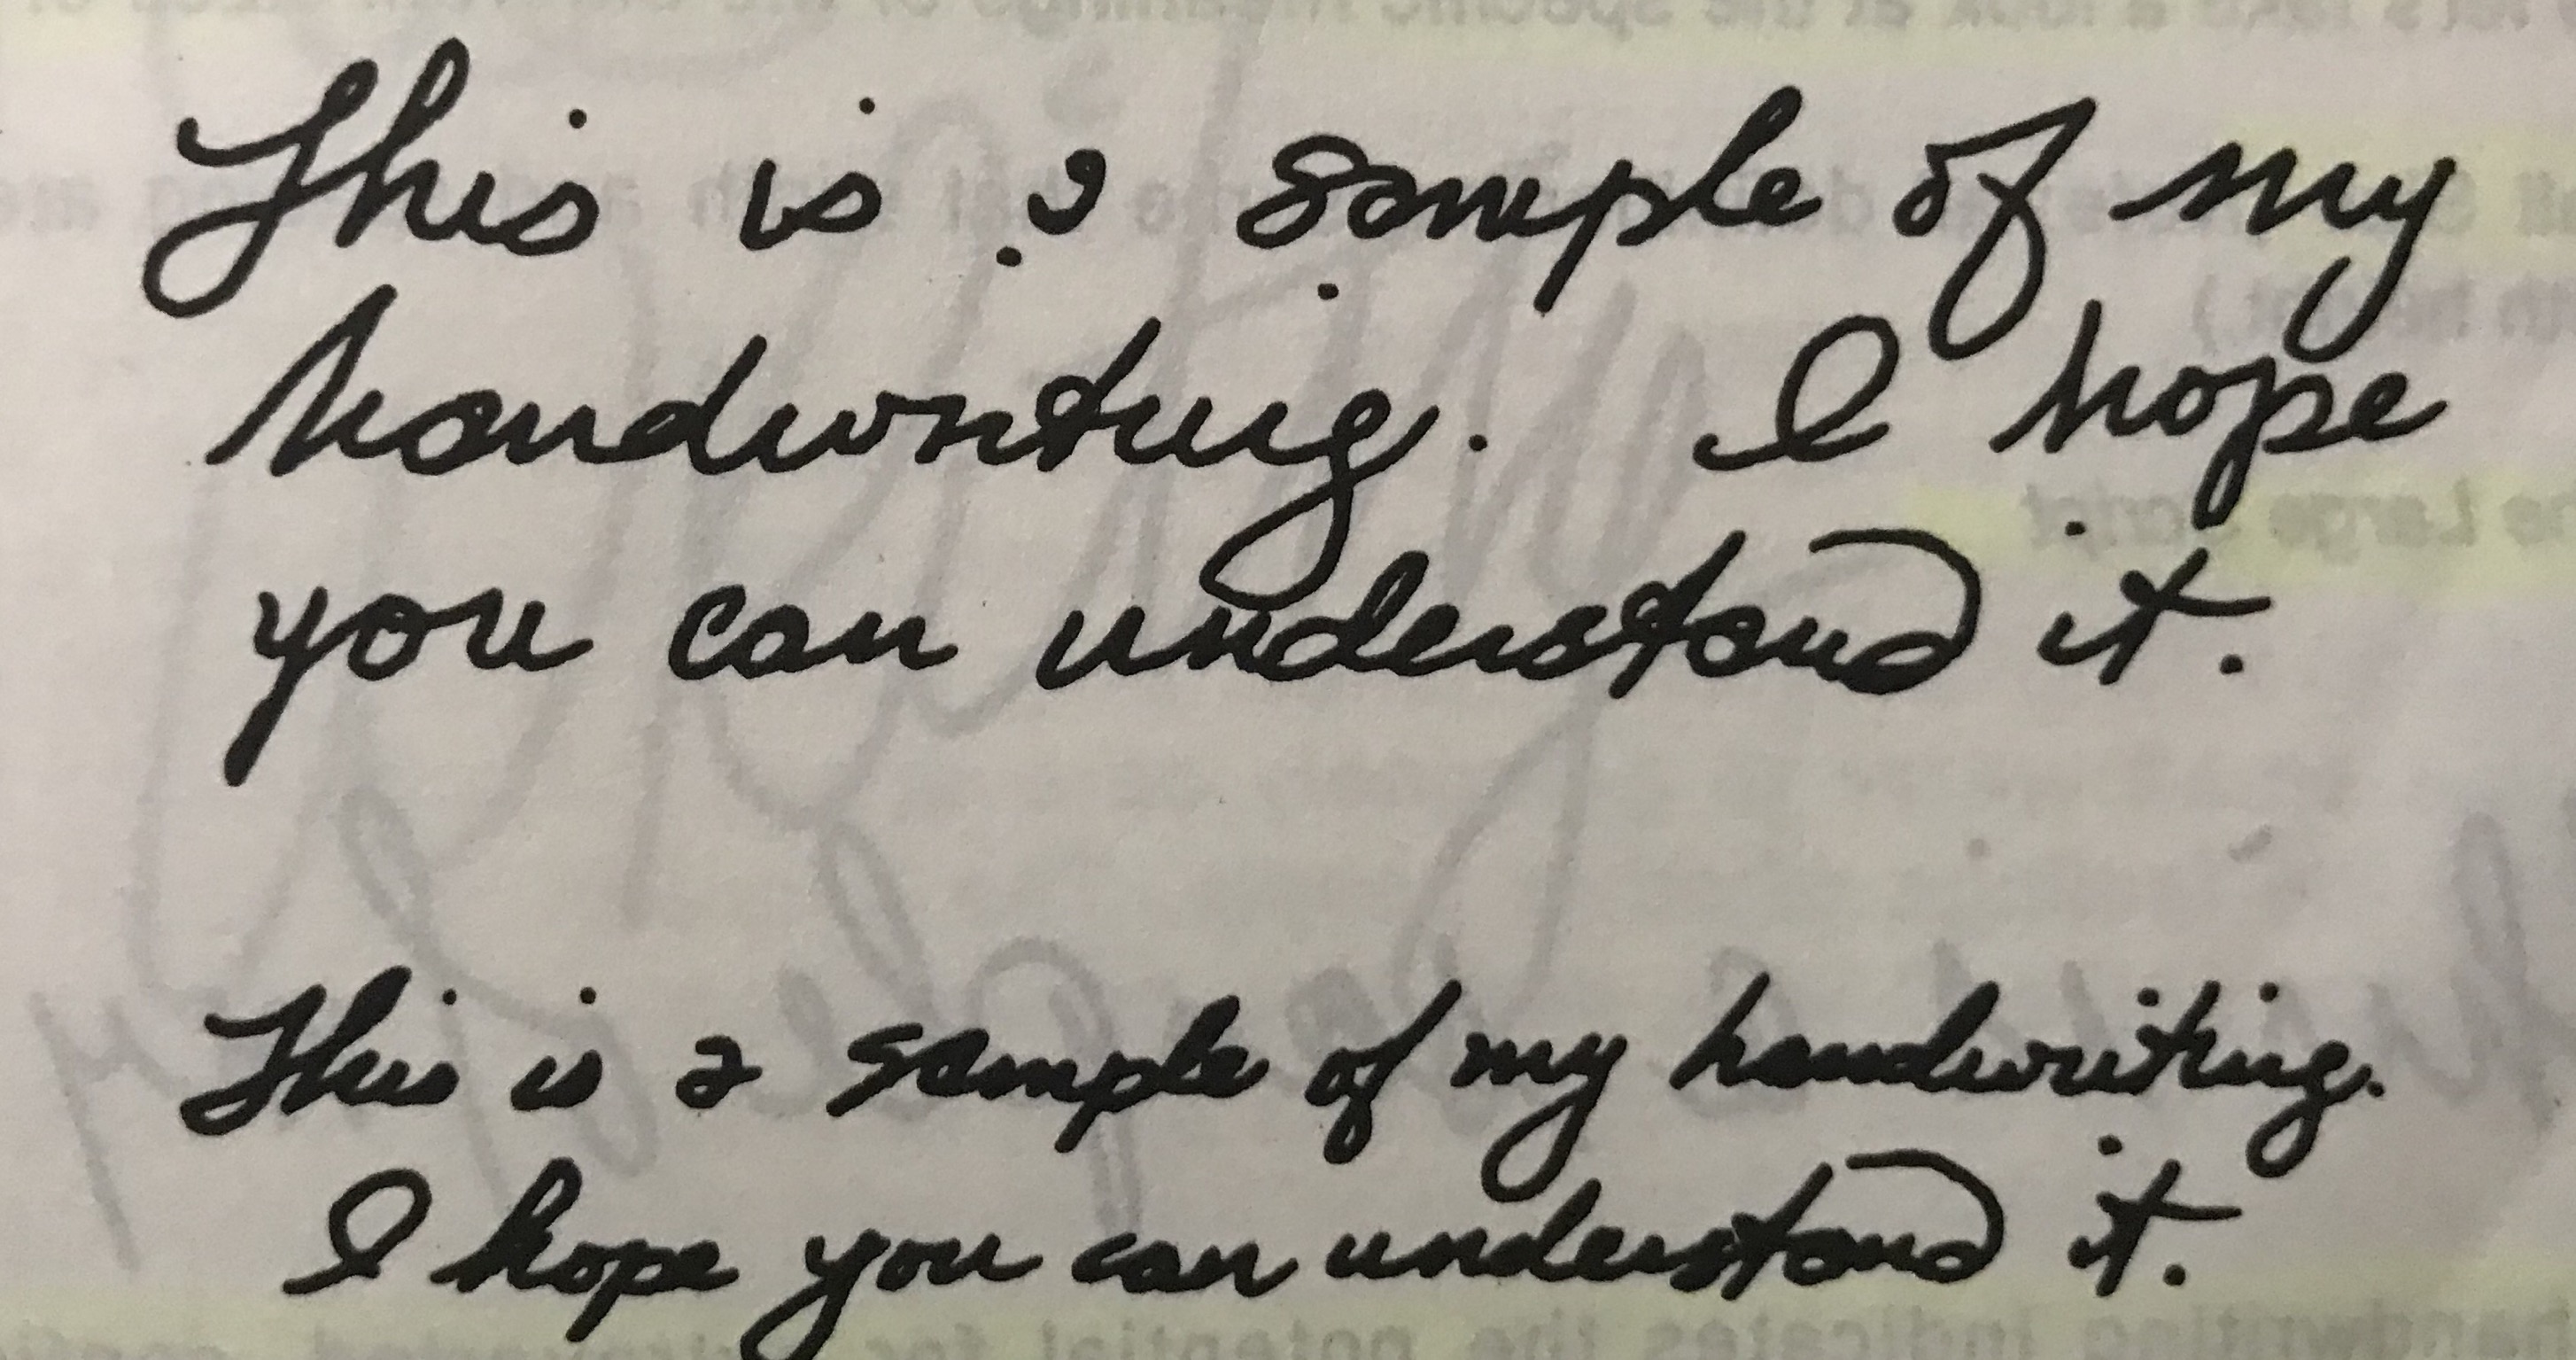 This is a sample of my
handwriting. I hope
you can understand it.
This is a sample of my handwriting.
I hope you can understand it.